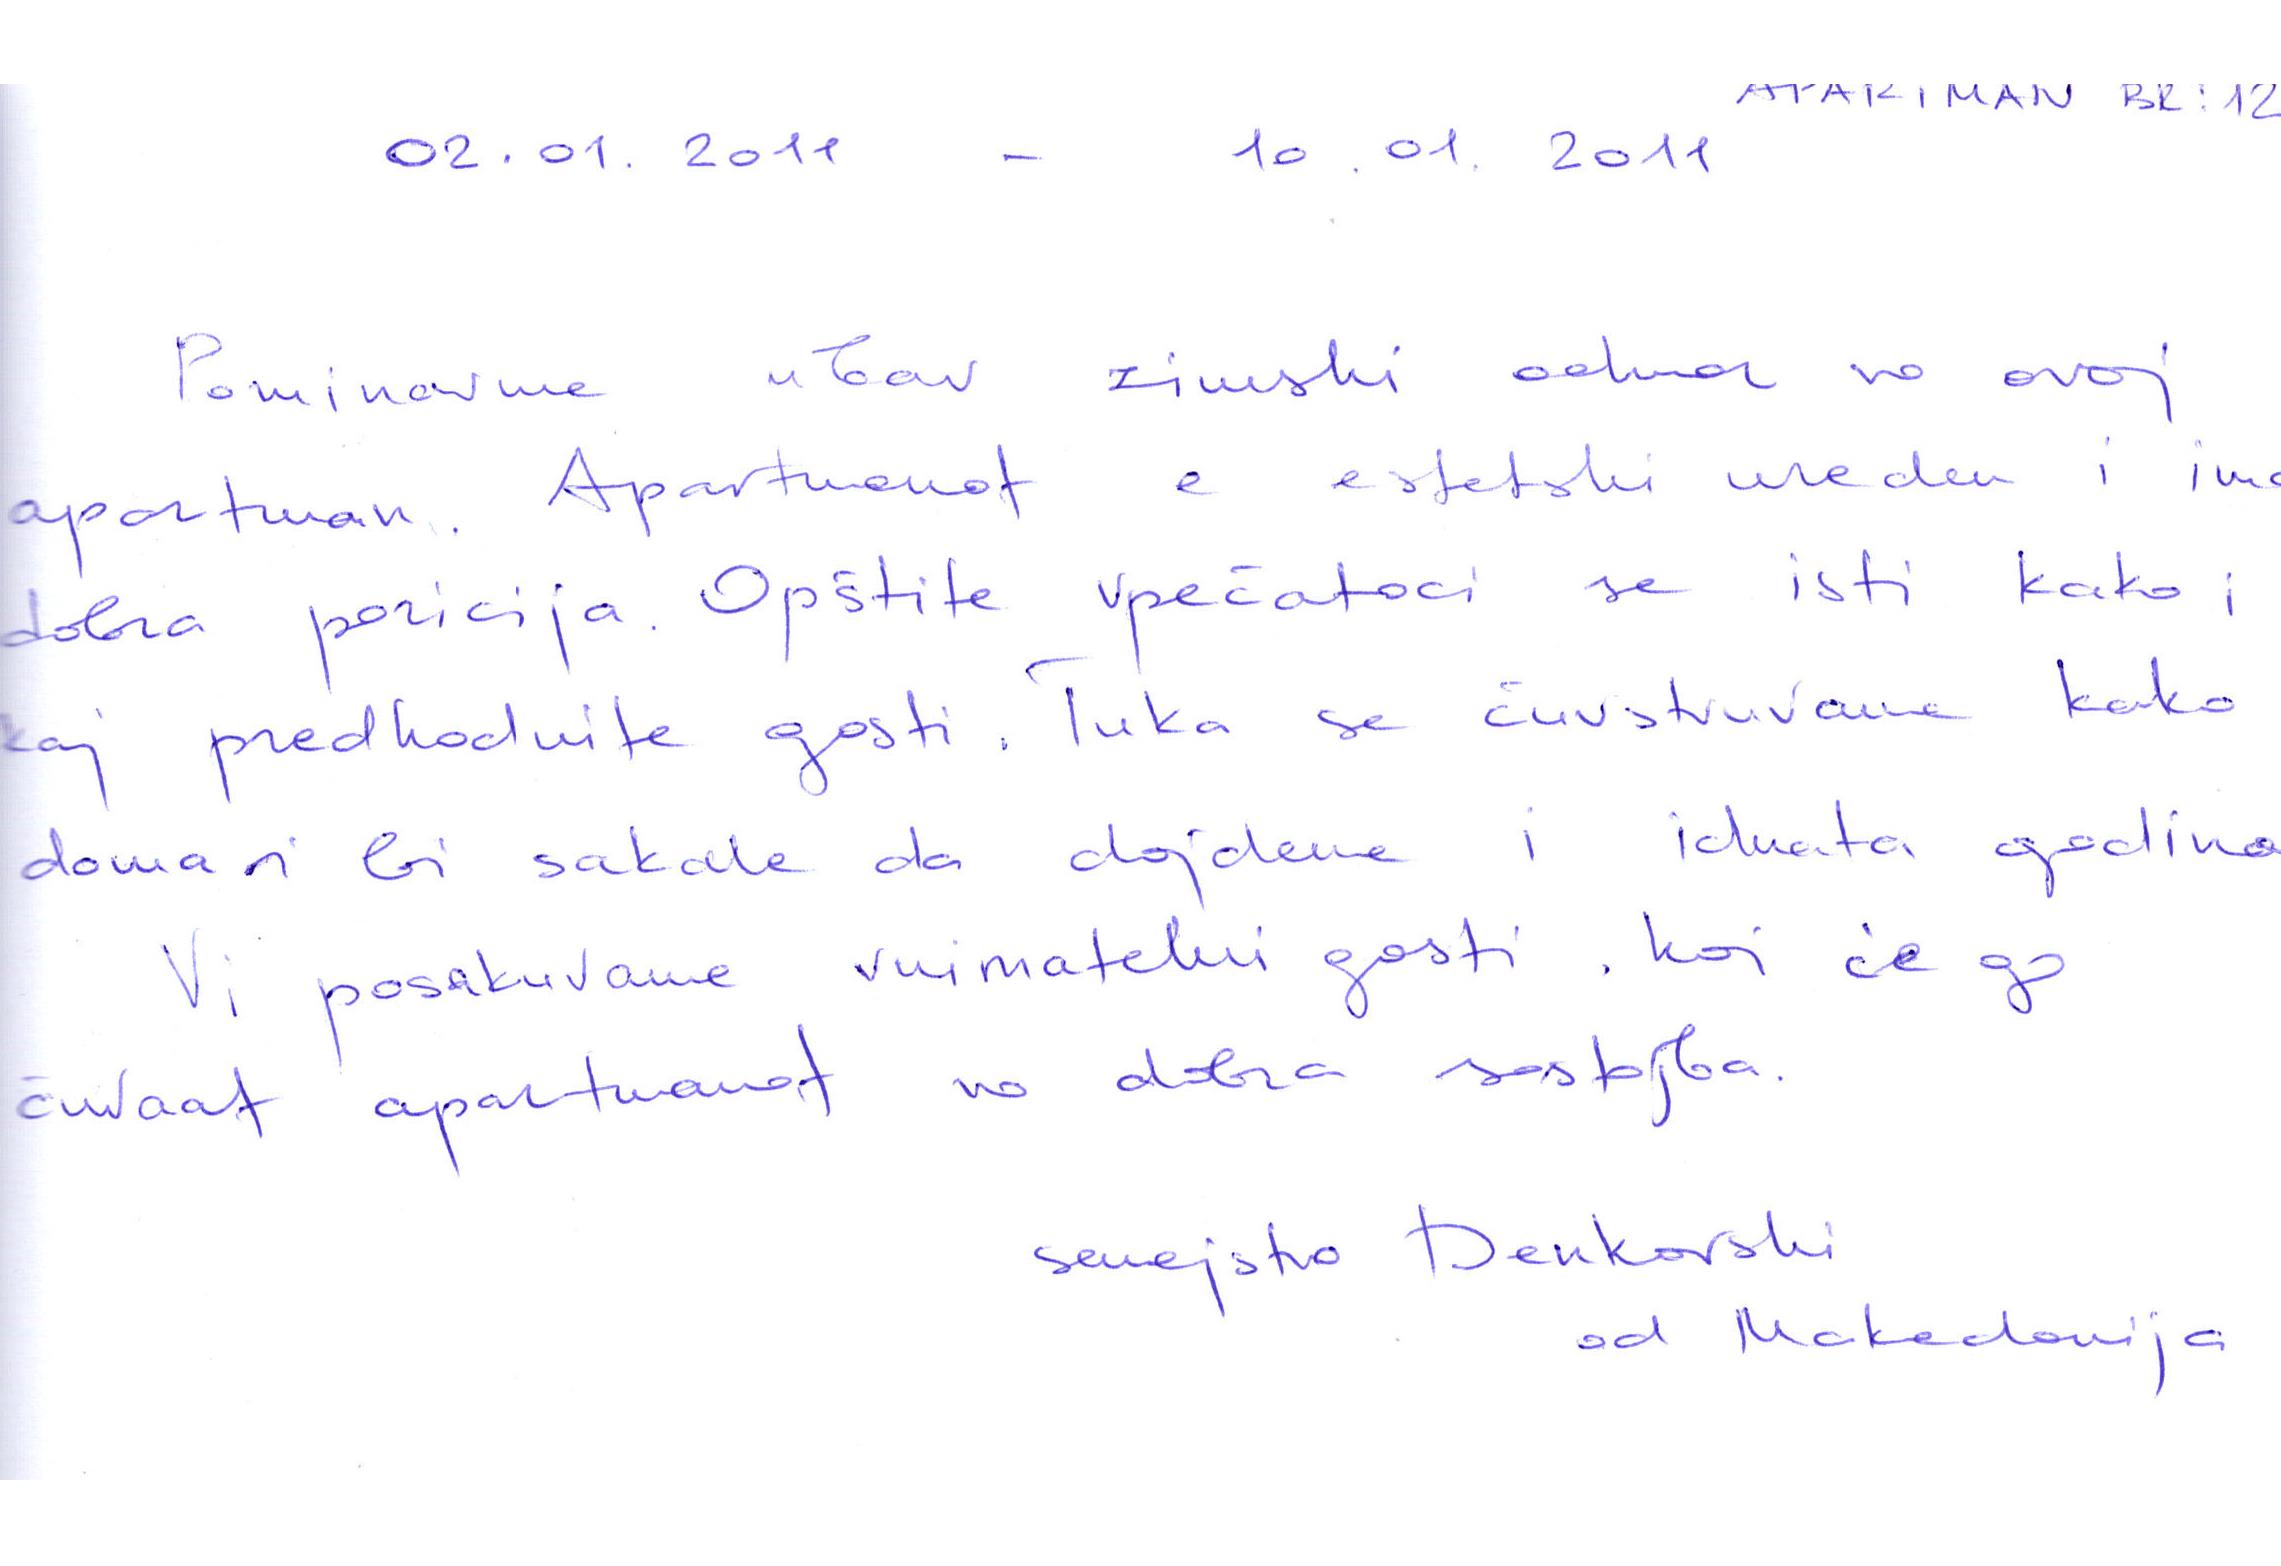 APARTMAN BR: 12
02.01.2011 - 10.01.2011
Pominavme ubav zimski odmor vo ovoj
apartman. Apartmanot e estetski ureden i ima
dobra pozicija. Opštite vpečatoci se isti kako i
kaj predhodnite gosti. Tuka se čuvstvuvame kako
doma i bi sakale da dojdeme i idnata godina
Vi posakuvame vnimatelni gosti, koi će go
čuvaat apartmanot vo dobra sostojba.
semejstvo Denkovski
od Makedonija